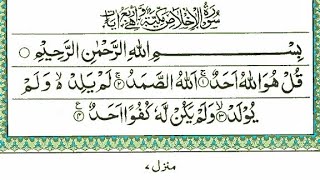 سُوْرَةُ الْاِخْلَاصِ مَكِّيَّةٌ وَّهِيَ اَرْبَعُ اٰيَاتٍ
بِسْمِ اللّٰهِ الرَّحْمٰنِ الرَّحِيْمِ ○
قُلْ هُوَ اللّٰهُ اَحَدٌ ۚ۱ اَللّٰهُ الصَّمَدُ ۚ۲ لَمْ يَلِدْ ۙ۬ وَلَمْ
يُوْلَدْ ۙ۳ وَلَمْ يَكُنْ لَّهٗ كُفُوًا اَحَدٌ ۧ۴
منزل ۷